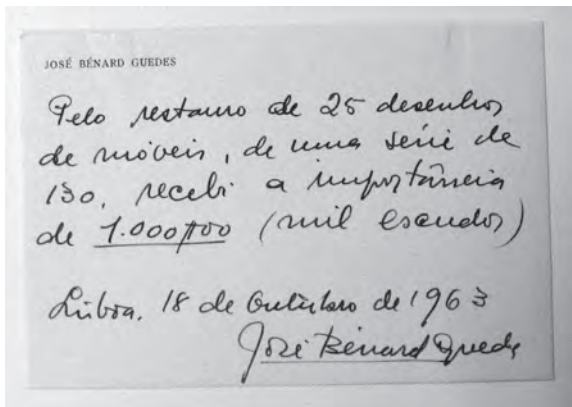 JOSÉ BÉNARD GUEDES
Pelo restauro de 25 desenhos
de móveis, de uma série de
130, recebi a importância
de 1.000$00 (mil escudos)
Lisboa, 18 de Outubro de 1963
José Bénard Guedes